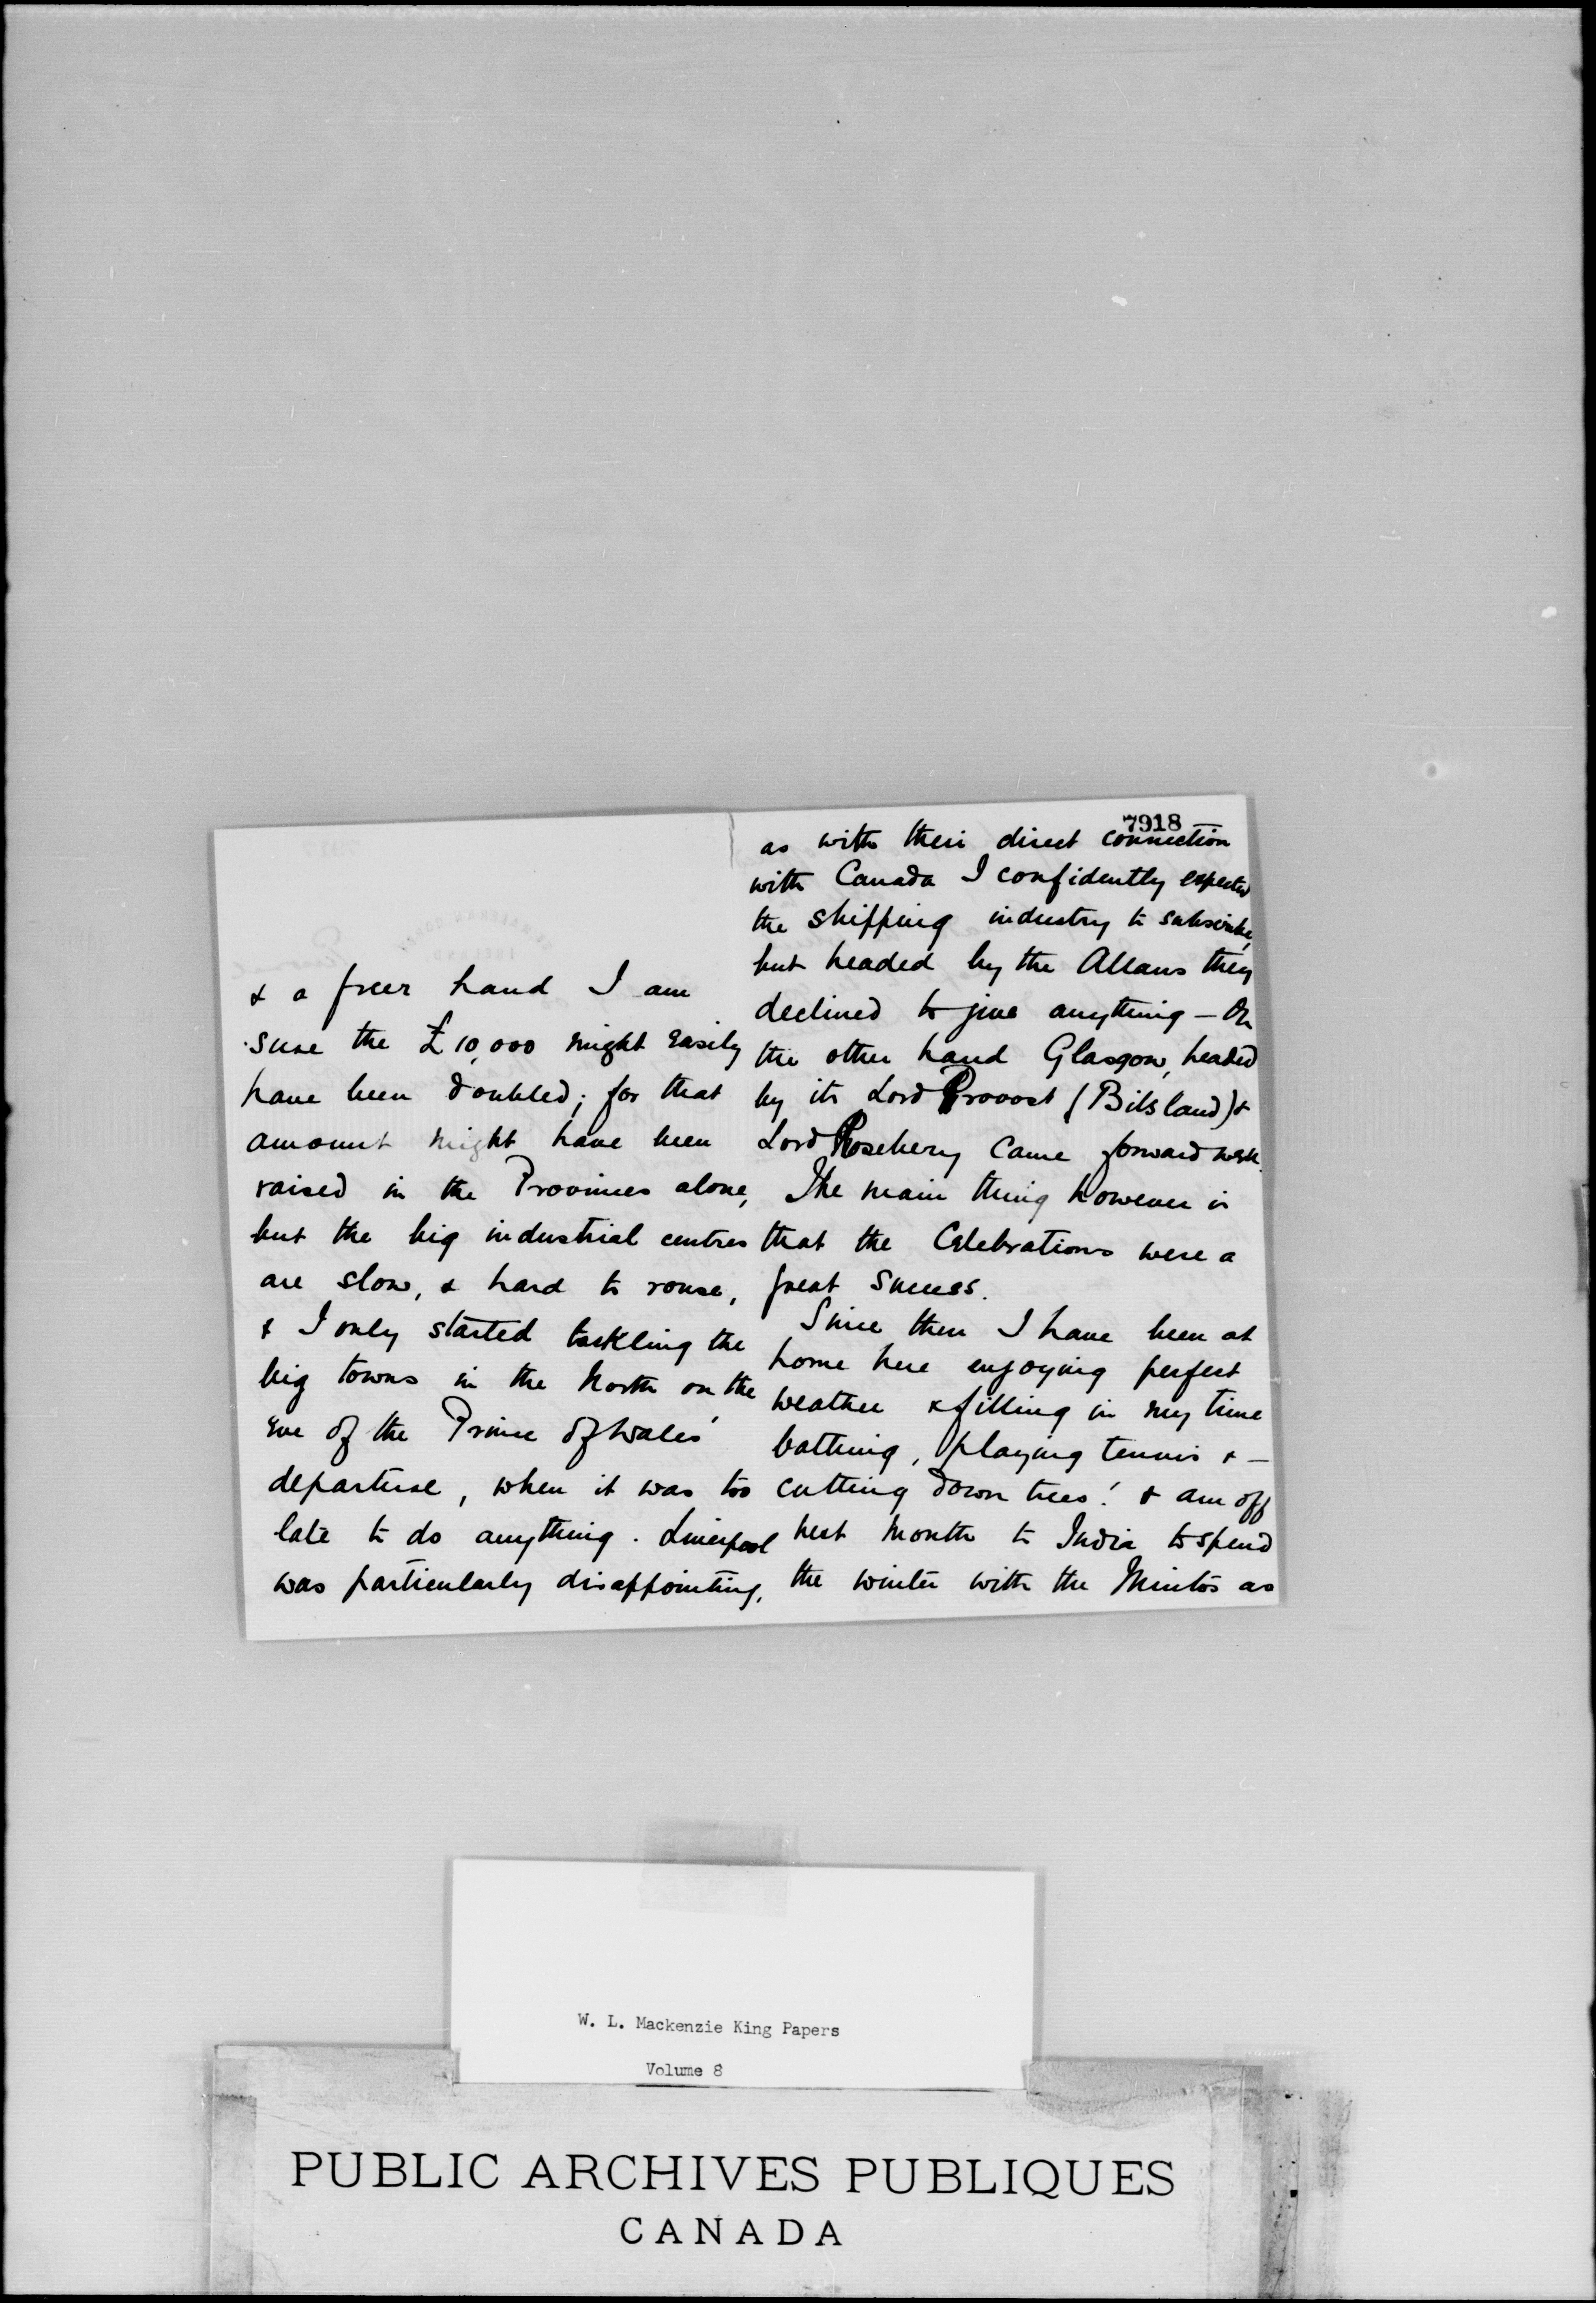 & a freer hand I am
sure the £10,000 might easily
have been doubled; for that
amount might have been
raised in the Provinces alone,
but the big industrial centres
are slow, & hard to rouse,
& I only started tackling the
big towns in the North on the
eve of the Prince of Wales'
departure, when it was too
late to do anything. Liverpool
was particularly disappointing,
7918
as with their direct connection
with Canada I confidently expected
the shipping industry to subscribe,
but headed by the Allans they
declined to give anything — On
the other hand Glasgow, headed
by its Lord Provost (Bilsland) &
Lord Rosebery came forward well.
The main thing however is
that the Celebrations were a
great success.
Since then I have been at
home here enjoying perfect
weather & filling in my time
bathing, playing tennis & —
cutting down trees! & am off
next month to India to spend
the winter with the Mintos as
W. L. Mackenzie King Papers
Volume 8
PUBLIC ARCHIVES PUBLIQUES
CANADA